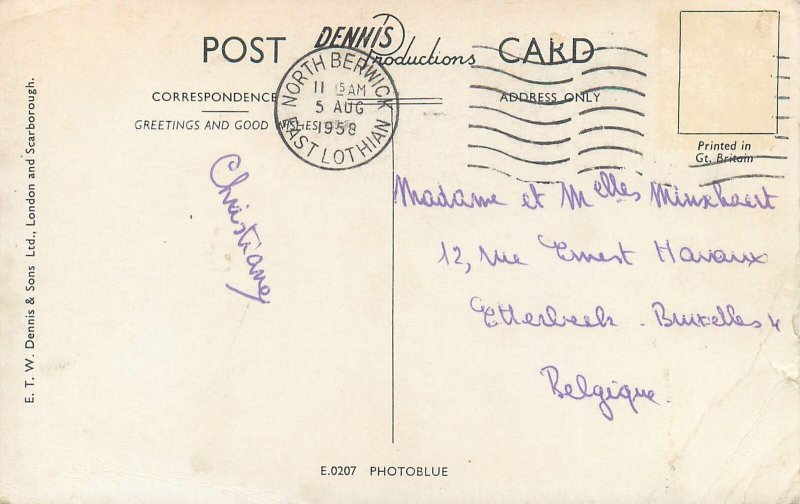 POST DENNIS Productions CARD
CORRESPONDENCE
ADDRESS ONLY
GREETINGS AND GOOD WISHES
NORTH BERWICK
11 15 AM
5 AUG
1958
EAST LOTHIAN
Printed in
Gt. Britain
Christiane
Madame et Melles Minxhaert
12, rue Ernest Havaux
Etterbeek - Bruxelles 4
Belgique.
E. T. W. Dennis & Sons Ltd., London and Scarborough.
E.0207 PHOTOBLUE